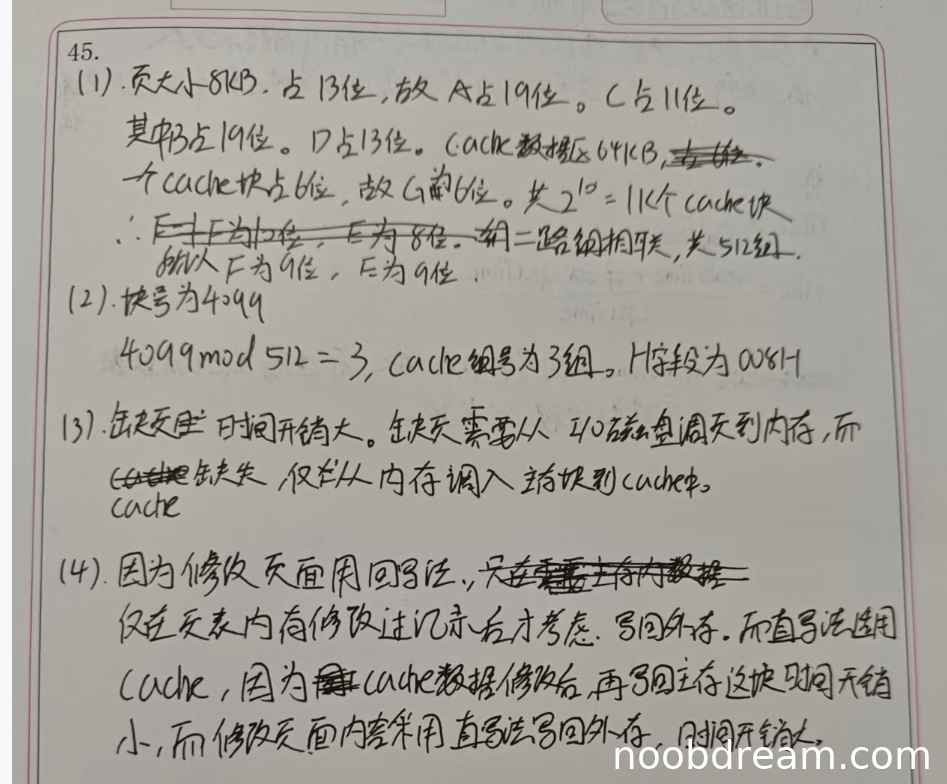 45.
(1).页大小8KB.占13位,故A占19位。C占11位。
其中B占19位。D占13位。Cache数据区64KB,
一个cache块占6位,故G为6位。共2^10=1K个cache块
∴ F为12位,E为8位.二路组相联,共512组.
所以F为9位,E为9位.
(2).块号为4099
4099mod 512=3, Cache组号为3组。H字段为008H
(3).缺页处时间开销大。缺页需要从I/O磁盘调页到内存,而
cache缺失,仅从内存调入主存块到cache中。
cache
(4).因为修改页面用回写法.,只在需要主存内数据
仅在页表内有修改过记录后才考虑.写回外存。而直写法适用
Cache,因为cache数据修改后,再写回主存这块时间开销
小,而修改页面内容采用直写法写回外存,时间开销大。
noobdream.com